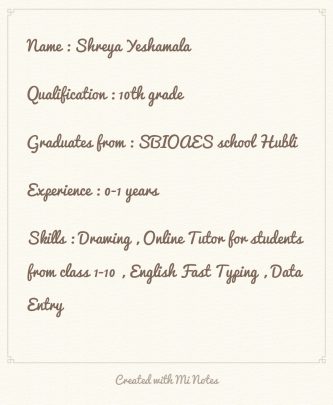 Name : Shreya Yeshamala
Qualification : 10th grade
Graduates from : SBIOAES school Hubli
Experience : 0-1 years
Skills : Drawing , Online Tutor for students
from class 1-10 , English Fast Typing , Data
Entry
Created with Mi Notes